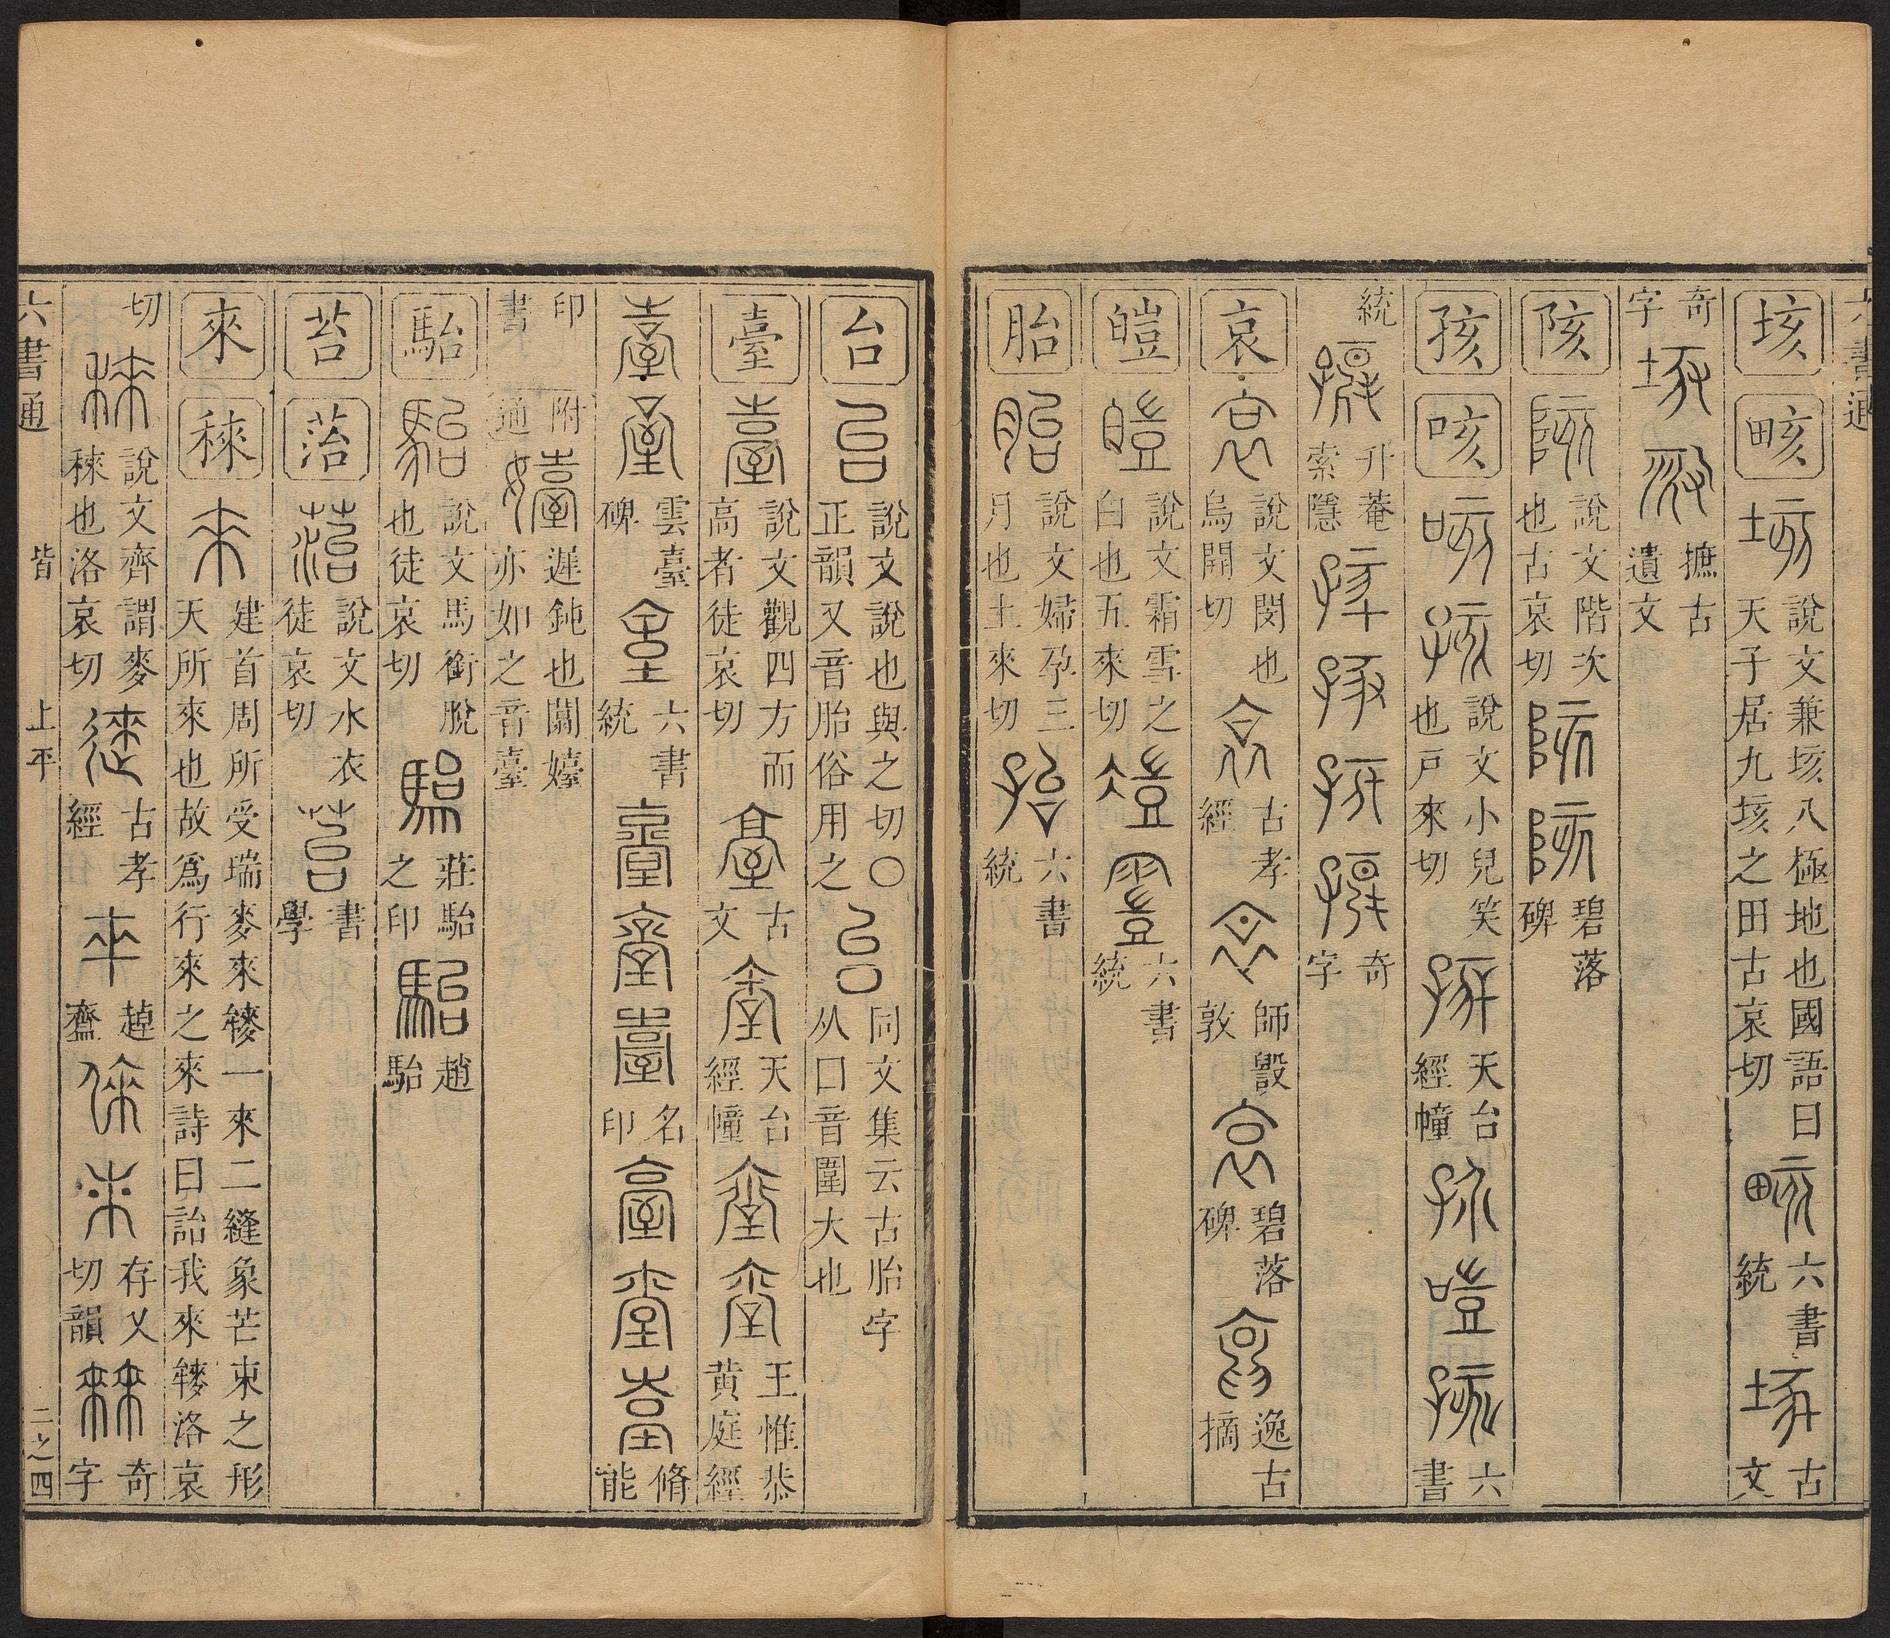 六書通
垓 畡 說文兼垓八極地也國語曰天子居九垓之田古哀切 六書統 古文
奇字 摭古遺文
陔 說文階次也古哀切 碧落碑
孩 咳 說文小兒笑也戶來切 天台經幢 六書
統 升菴索隱 奇字
哀 說文閔也烏開切 古孝經 師毀敦 碧落碑 逸古摘
皚 說文霜雪之白也五來切 六書統
胎 說文婦孕三月也土來切 六書統
台 說文說也與之切〇正韻又音胎俗用之 同文集云古胎字从口音圍大也
臺 說文觀四方而高者徒哀切 古文 天台經幢 王惟恭黄庭經
雲臺碑 六書統 名印 脩能
印書 附通 遲鈍也闒嬯亦如之音臺
駘 說文馬銜脫也徒哀切 莊駘之印 趙駘
苔 菭 說文水衣徒哀切 書學
來 䅘 建首周所受瑞麥來麰一來二縫象芒朿之形天所來也故爲行來之來詩曰詒我來麰洛哀
切 說文齊謂麥䅘也洛哀切 古孝經 趠齍 存乂切韻 奇字
六書通 皆 上平 二之四